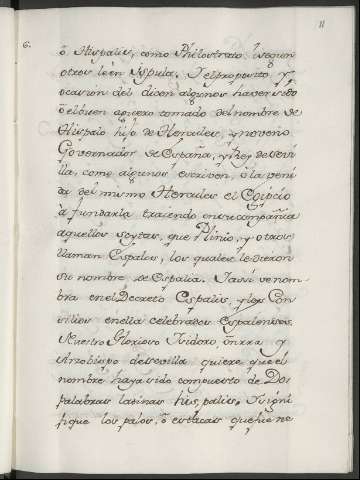 11
6.
ô Hispalis, como Philostrato i segun
otros leen Ispula. I el proposito, y
ocasion del dicen algunos haver sido
ô el buen aguero tomado del nombre de
Hispalo hijo de Hercules, y noveno
Governador de España, y Rey de Sevi
lla, como algunos escriven, ô la veni
da del mismo Hercules el Egipcio
â fundarla traiendo en su compañia
aquellos scytas, que Plinio, y otros
llaman Espalos, los quales le dieron
su nombre de Espalia. I assi se nom-
bra en el Decreto Espalis, y los Con
cilios en ella celebrados Espalenses.
Nuestro Glorioso Isidoro, y
Arzobispo de sevilla quiere que el
nombre haya sido compuesto de Dos
palabras latinas his, palis. I signi
fique los palos, ô estacas que se